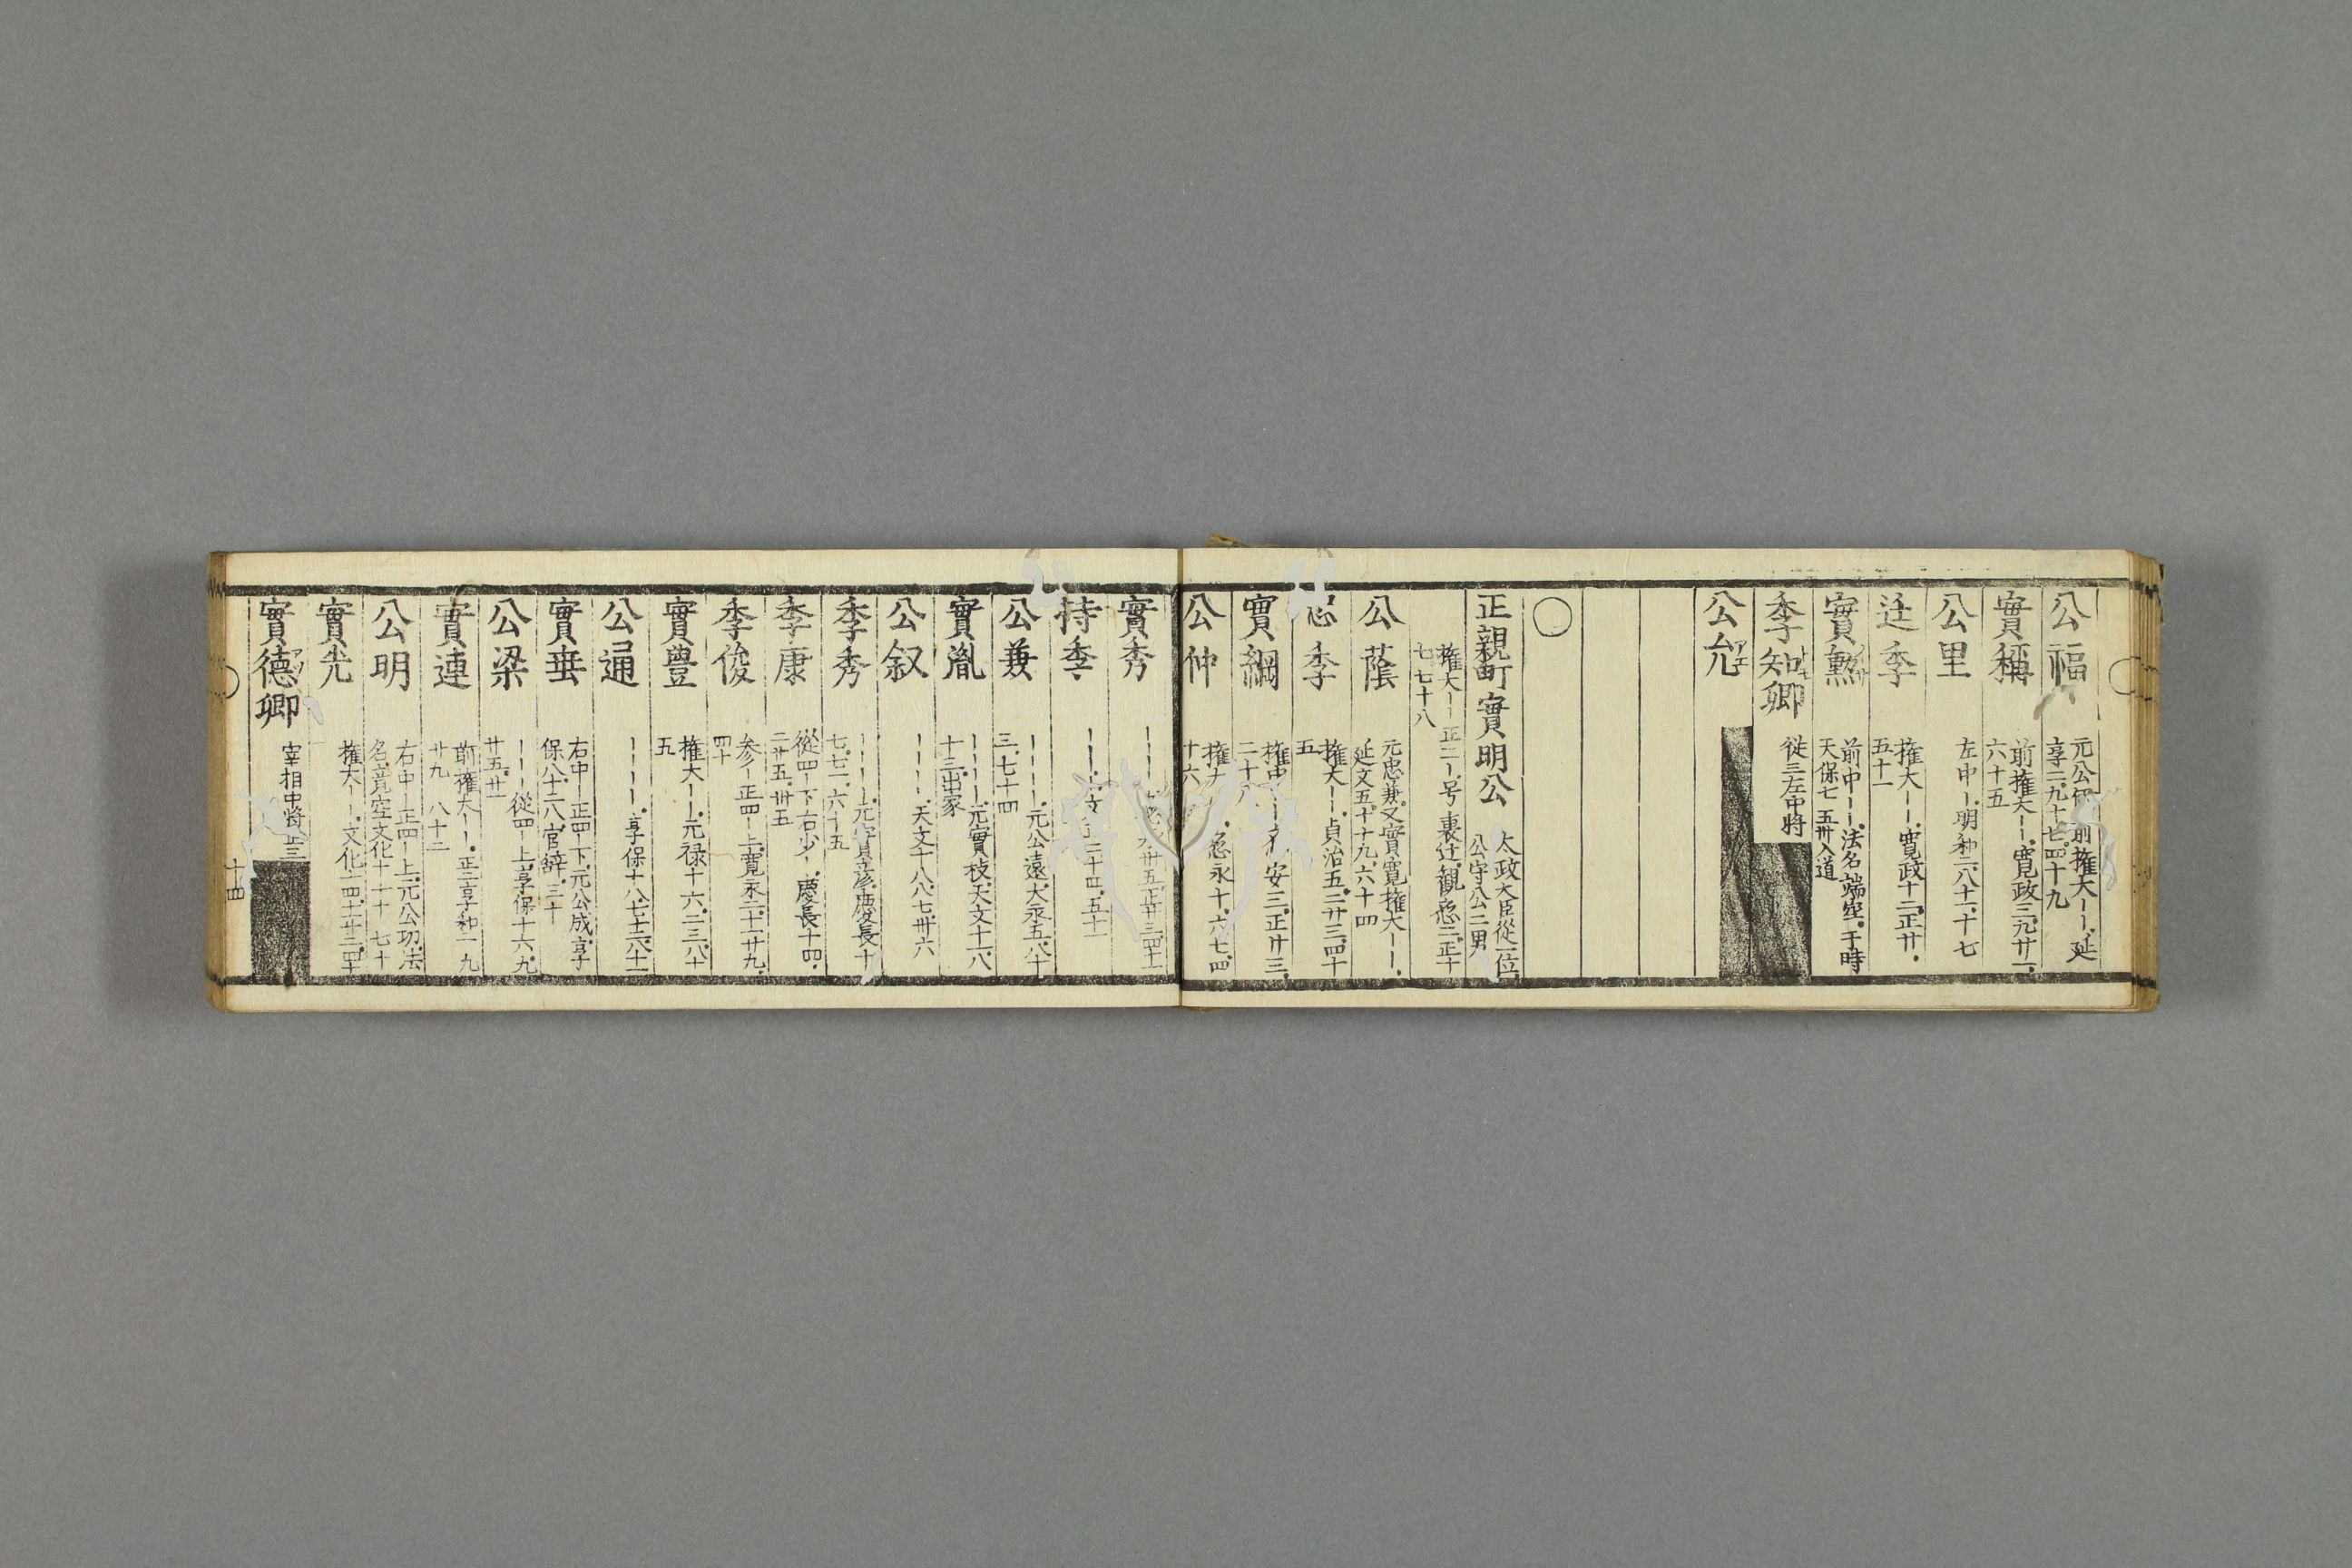 公福
元公
前権大ーー.延
享二.九.十七.四十九
實稱
前権大ーー.寛政三.九.廿一.
六十五
公里
左中ー.明和二.八.十一.十七
延季
権大ーー.寛政十二.正.廿.
五十一
實勲
前中ーー.法名端空.于時
天保七 五 卅入道
季知卿
従三左中将
公允
正親町實明公
太政大臣従一位
公守公二男
権大ーー正二ー.号裏辻.観應二.正.十
七.七十八
公蔭
元忠兼.又實寛.権大ーー.
延文五.十.十九.六十四
忠季
権大ーー.貞治五.二.廿二.四十
五
實綱
権中
安三.正.廿三.
二十八
公仲
権大
應永十.六.七.四
十六
實秀
持季
公兼
ーーーー.元公遠.大永五.八.十
三.七十四
實胤
ーーーー.元實枝.天文十一.八
十三.出家
公叙
ーーーー.天文十八.八.七.卅六
季秀
ーーーー.元實彦.慶長十
七.七.一.六十五
季康
従四ー下右少ー.慶長十四.
二.廿五.卅五
季俊
参ー正四ー上.寛永二.十一.廿九.
四十
實豊
権大ーー.元禄十六.二.三.八十
五
公通
ーーーー.享保十八.七.十二.八十一
實垂
右中ー正四ー下.元公成.享
保八.十二.八.官辞.三十
公梁
ーー従四ー上.享保十六.九.
廿五.廿一
實連
前権大ーー.正二享和二.九
廿九 八十二
公明
右中ー正四ー上.元公功.法
名竟空文化十 十 七十
實光
権大ーー.文化十四.十二.廿二.四十
實德卿
宰相中将正三
十四